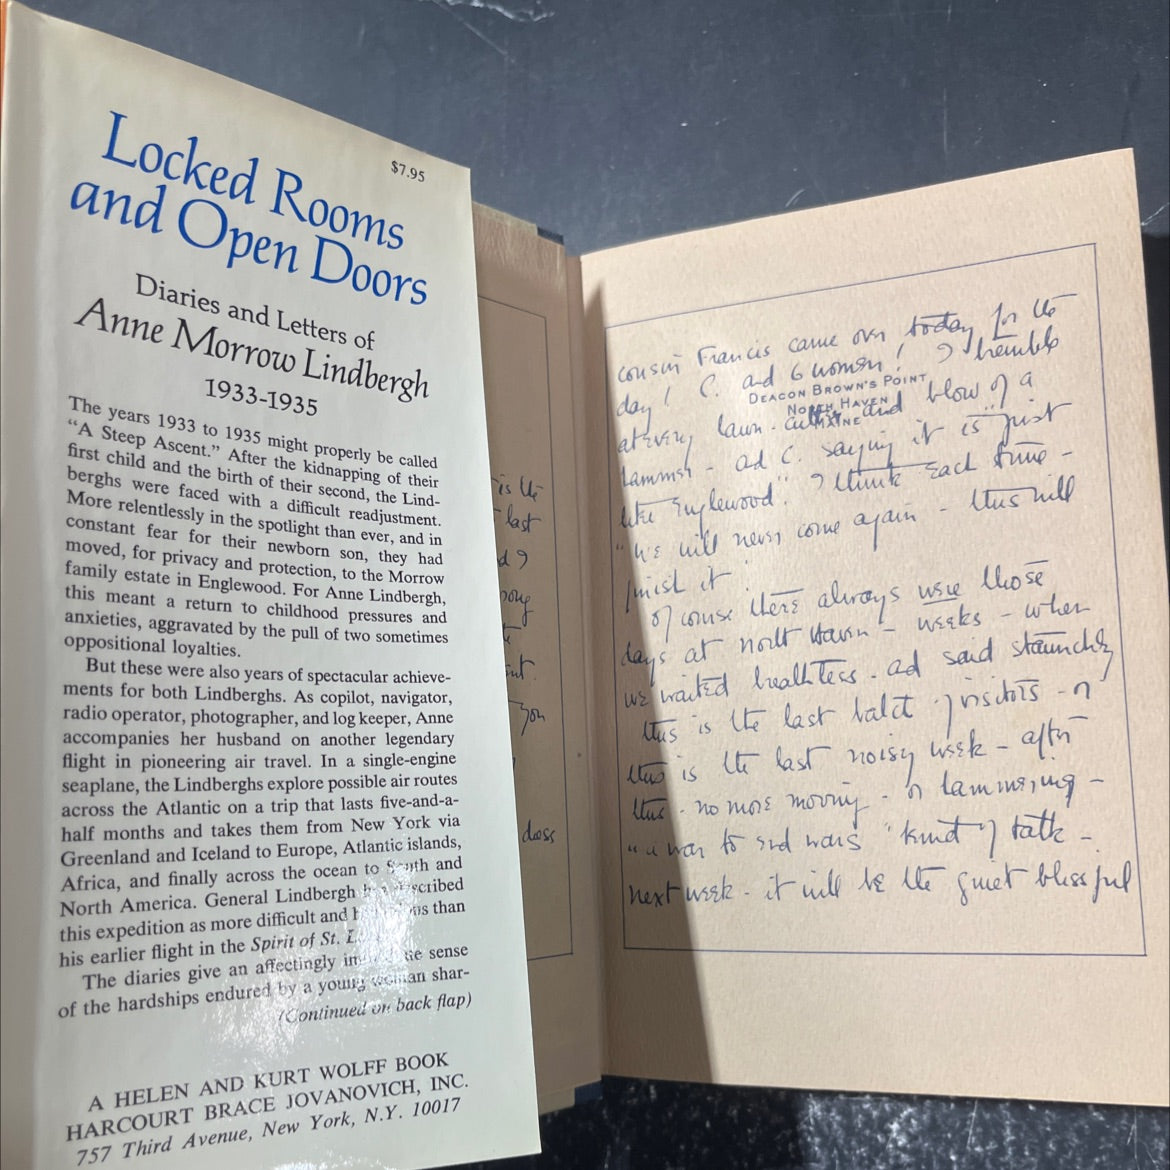 $7.95
Locked Rooms
and Open Doors
Diaries and Letters of
Anne Morrow Lindbergh
1933-1935
The years 1933 to 1935 might properly be called
“A Steep Ascent.” After the kidnapping of their
first child and the birth of their second, the Lind-
berghs were faced with a difficult readjustment.
More relentlessly in the spotlight than ever, and in
constant fear for their newborn son, they had
moved, for privacy and protection, to the Morrow
family estate in Englewood. For Anne Lindbergh,
this meant a return to childhood pressures and
anxieties, aggravated by the pull of two sometimes
oppositional loyalties.
But these were also years of spectacular achieve-
ments for both Lindberghs. As copilot, navigator,
radio operator, photographer, and log keeper, Anne
accompanies her husband on another legendary
flight in pioneering air travel. In a single-engine
seaplane, the Lindberghs explore possible air routes
across the Atlantic on a trip that lasts five-and-a-
half months and takes them from New York via
Greenland and Iceland to Europe, Atlantic islands,
Africa, and finally across the ocean to South and
North America. General Lindbergh has described
this expedition as more difficult and than
his earlier flight in the Spirit of St. L
The diaries give an affectingly sense
of the hardships endured by a young woman shar-
(Continued on back flap)
A HELEN AND KURT WOLFF BOOK
HARCOURT BRACE JOVANOVICH, INC.
757 Third Avenue, New York, N.Y. 10017
is the
last
d I
you
doss
cousin Francis came over today for the
day! C. and 6 women! I tremble
DEACON BROWN'S POINT
NORTH HAVEN
MAINE
at every lawn-cutter and blow of a
hammer - and C. saying it is "just
like Englewood". I think each time -
"We will never come again - this will
finish it".
Of course there always were those
days at North Haven - weeks - when
we waited breathless - and said staunchly
this is the last batch of visitors - or
this is the last noisy week - after
this - no more moving - or hammering -
"a war to end wars" kind of talk -
next week - it will be the quiet blissful